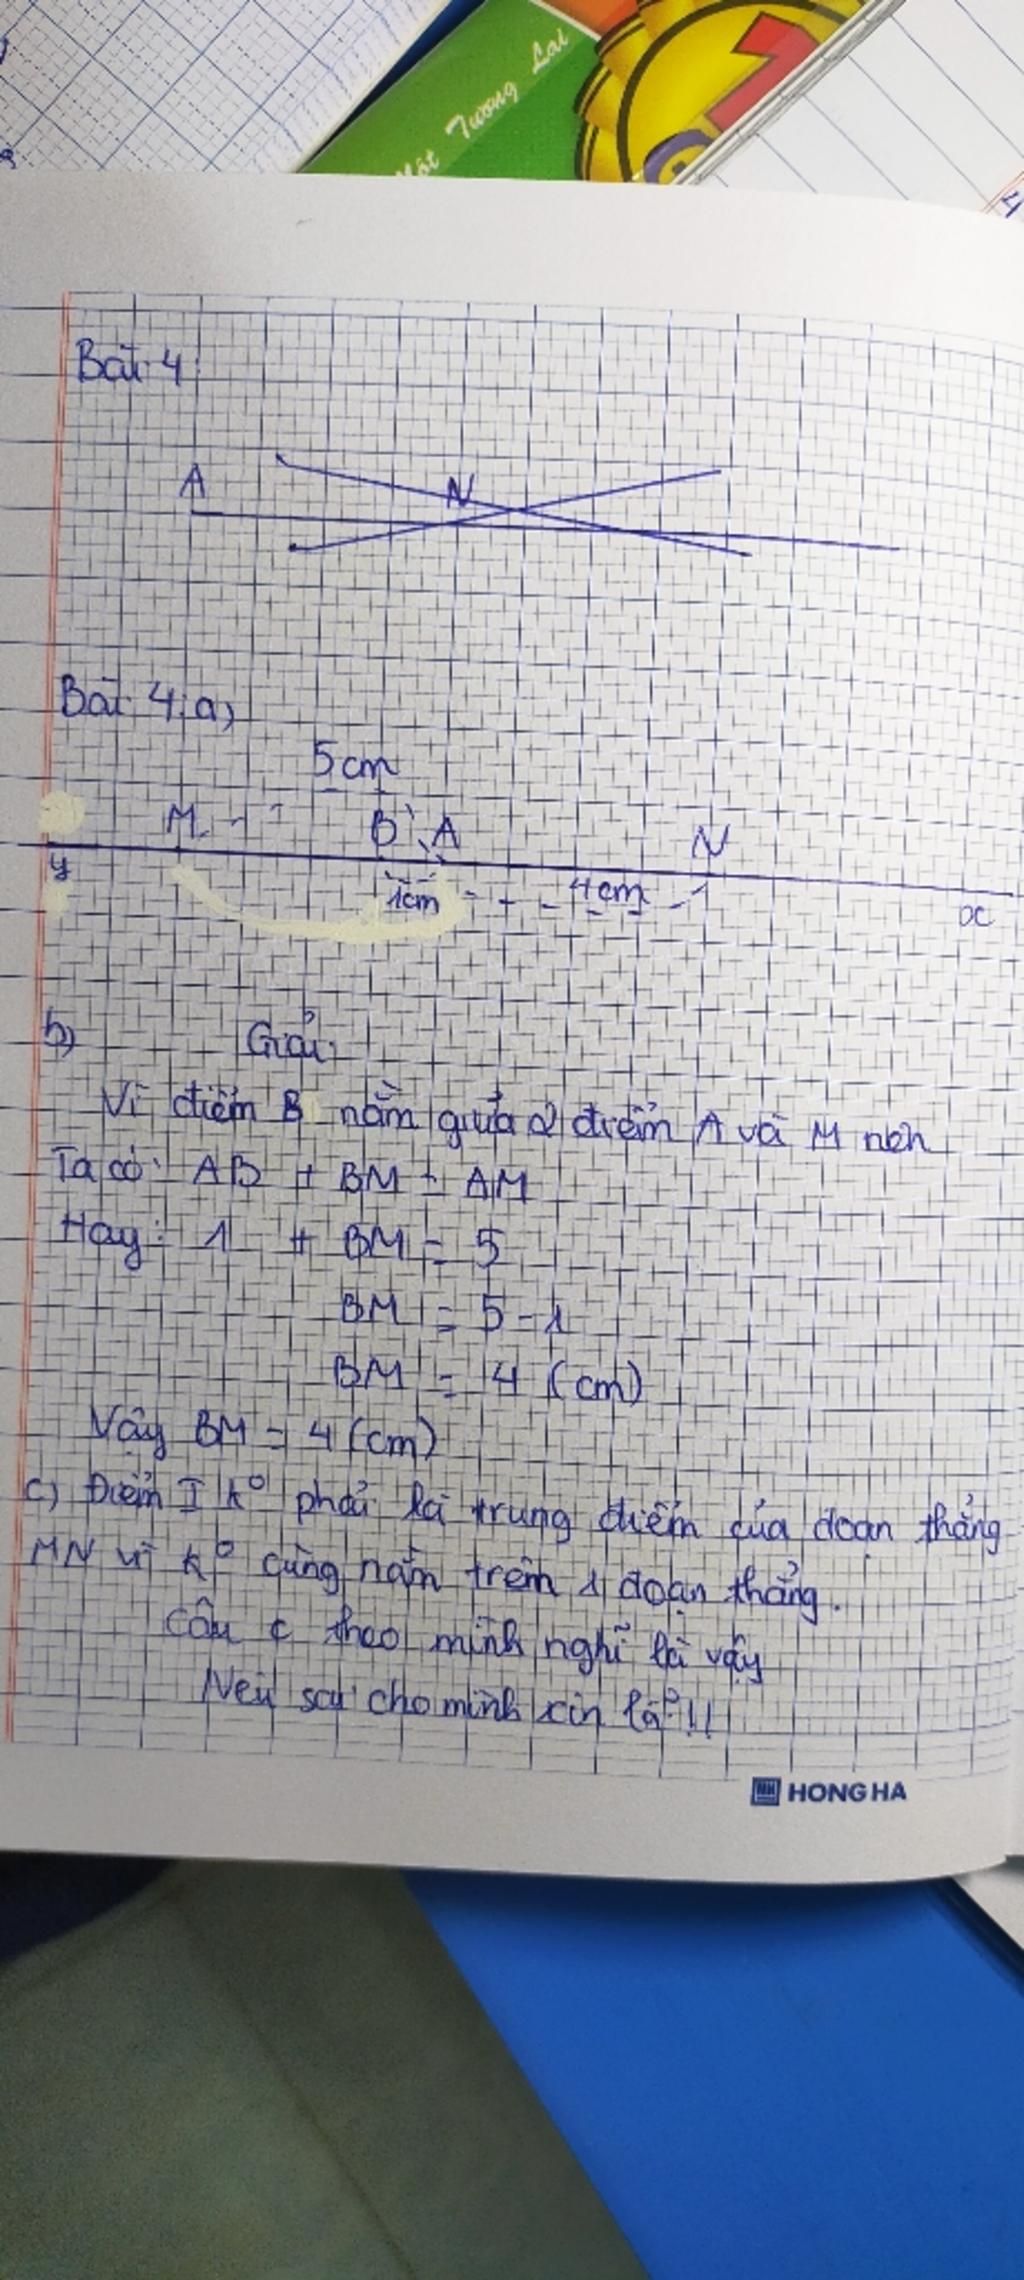 Một Tương Lai
Bài 4:
A N
Bài 4: a)
5cm
M B A N
y 1cm 4cm x
b) Giải:
Vì điểm B nằm giữa 2 điểm A và M nên
Ta có: AB + BM = AM
Hay: 1 + BM = 5
BM = 5 - 1
BM = 4 (cm)
Vậy BM = 4 (cm)
c) Điểm I k° phải là trung điểm của đoạn thẳng
MN vì k° cùng nằm trên 1 đoạn thẳng.
Câu c theo mình nghĩ là vậy
Nếu sai cho mình xin lỗi!!
HONG HA